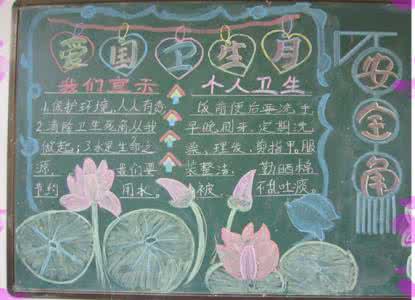 爱国卫生月
我们宣示
1.保护环境,人人有责
2.清除卫生死角从我
做起;3.水是生命之
源, 我们要
节约 用水。
个人卫生
饭前便后要洗手
早晚刷牙,定期洗
澡、理发、剪指甲。服
装整洁, 勤晒棉
被, 不乱吐痰。
安全角